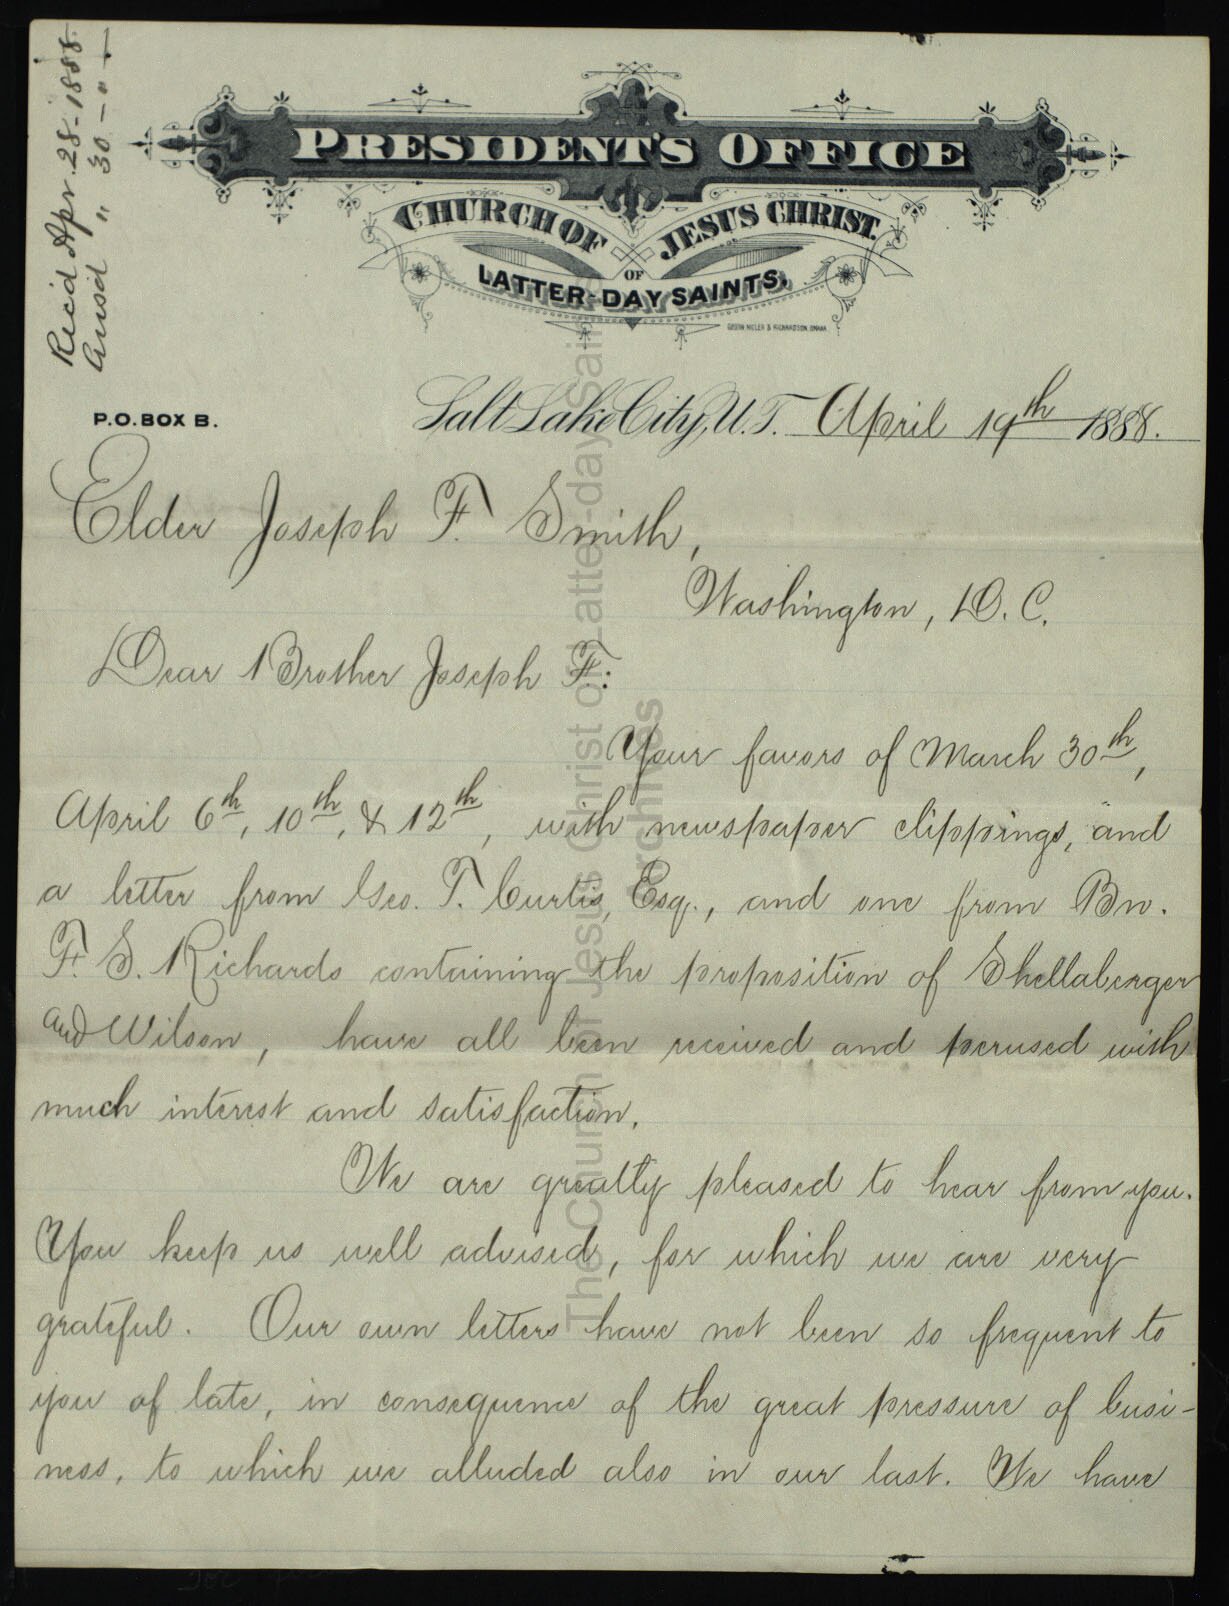 Rec'd Apr. 28-1888
Ansd " 30 - " -
PRESIDENT'S OFFICE
CHURCH OF JESUS CHRIST
OF
LATTER-DAY SAINTS.
P.O. BOX B.
Salt Lake City, U.T. April 19th 1888.
Elder Joseph F. Smith,
Washington, D.C.
Dear Brother Joseph F.:
Your favors of March 30th,
April 6th, 10th, & 12th, with newspaper clippings, and
a letter from Geo. T. Curtis, Esq., and one from Bro.
F. S. Richards containing the proposition of Shellaberger
and Wilson, have all been received and perused with
much interest and satisfaction.
We are greatly pleased to hear from you.
You keep us well advised, for which we are very
grateful. Our own letters have not been so frequent to
you of late, in consequence of the great pressure of busi-
ness, to which we alluded also in our last. We have
The Church of Jesus Christ of Latter-day Saints
Archives